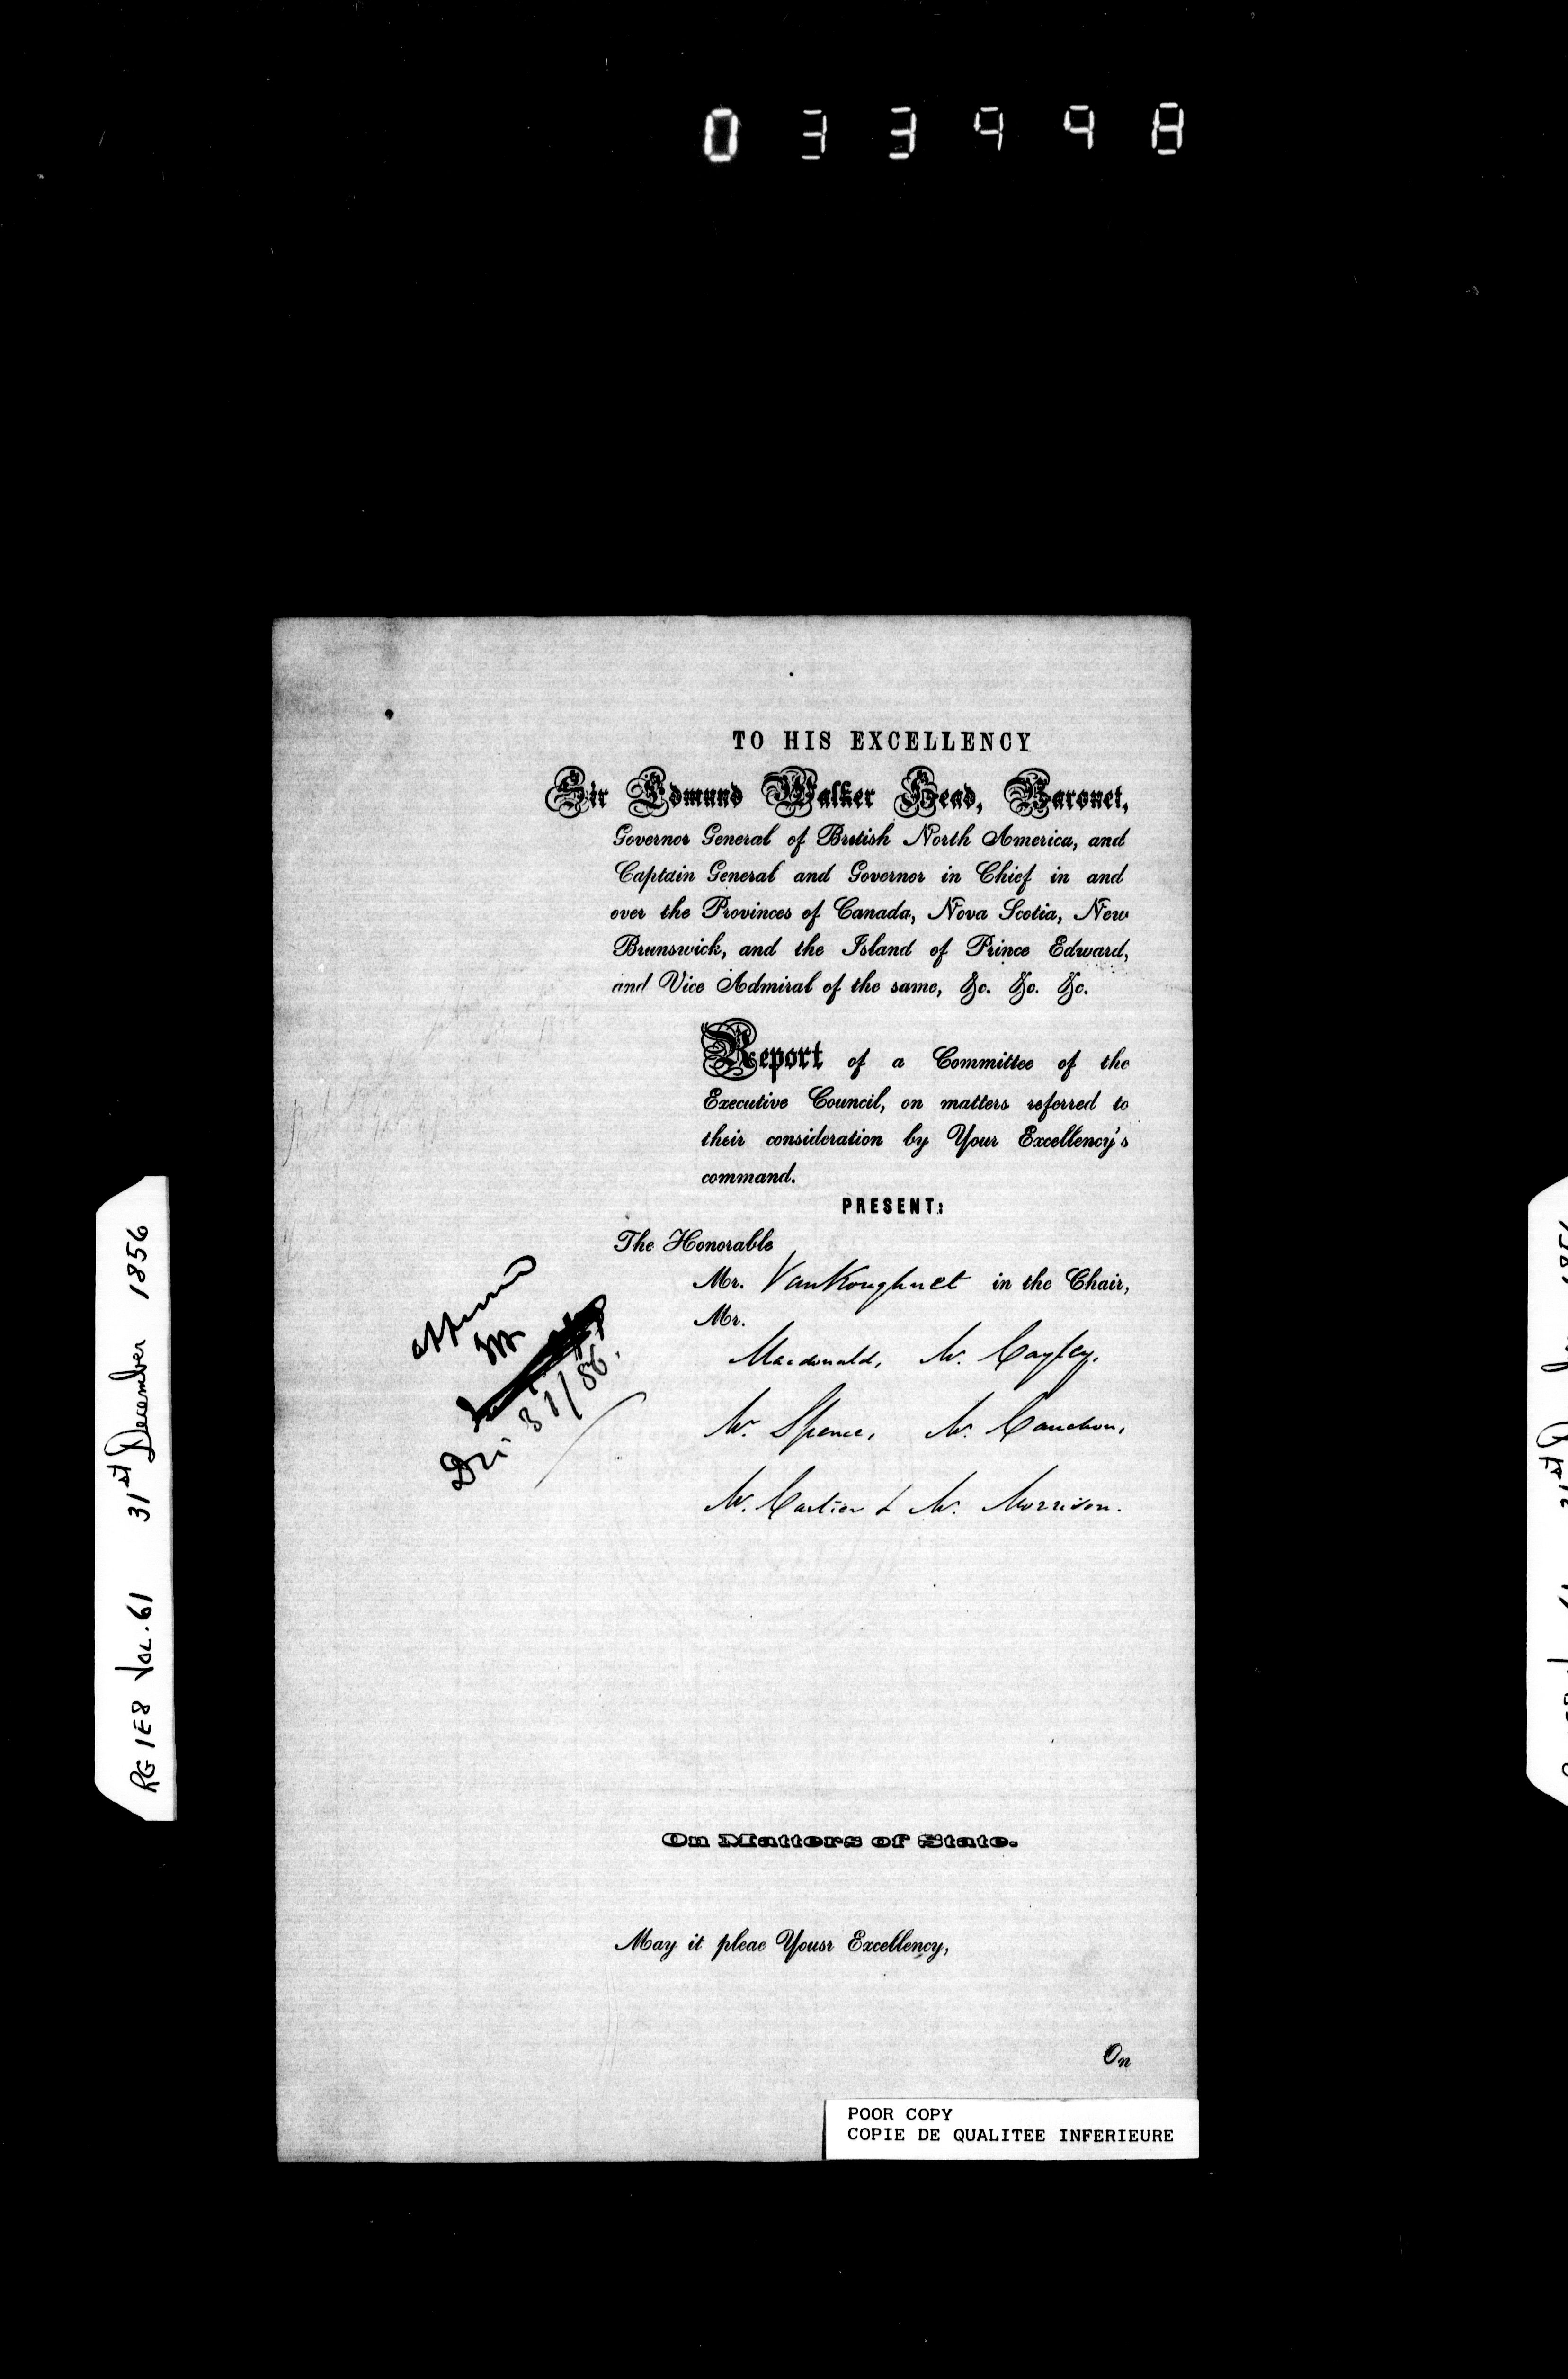 033998
TO HIS EXCELLENCY
Sir Edmund Walker Head, Baronet,
Governor General of British North America, and
Captain General and Governor in Chief in and
over the Provinces of Canada, Nova Scotia, New
Brunswick, and the Island of Prince Edward,
and Vice Admiral of the same, &c. &c. &c.
Report of a Committee of the
Executive Council, on matters referred to
their consideration by Your Excellency's
command.
PRESENT:
The Honorable
Mr. VanKoughnet in the Chair,
Mr.
Macdonald, Mr. Cayley,
Mr. Spence, Mr. Cauchon,
Mr. Cartier & Mr. Morrison.
31/56.
On Matters of State.
May it pleae Yousr Excellency,
On
POOR COPY
COPIE DE QUALITEE INFERIEURE
RG 1E8 Vol. 61 31st December 1856